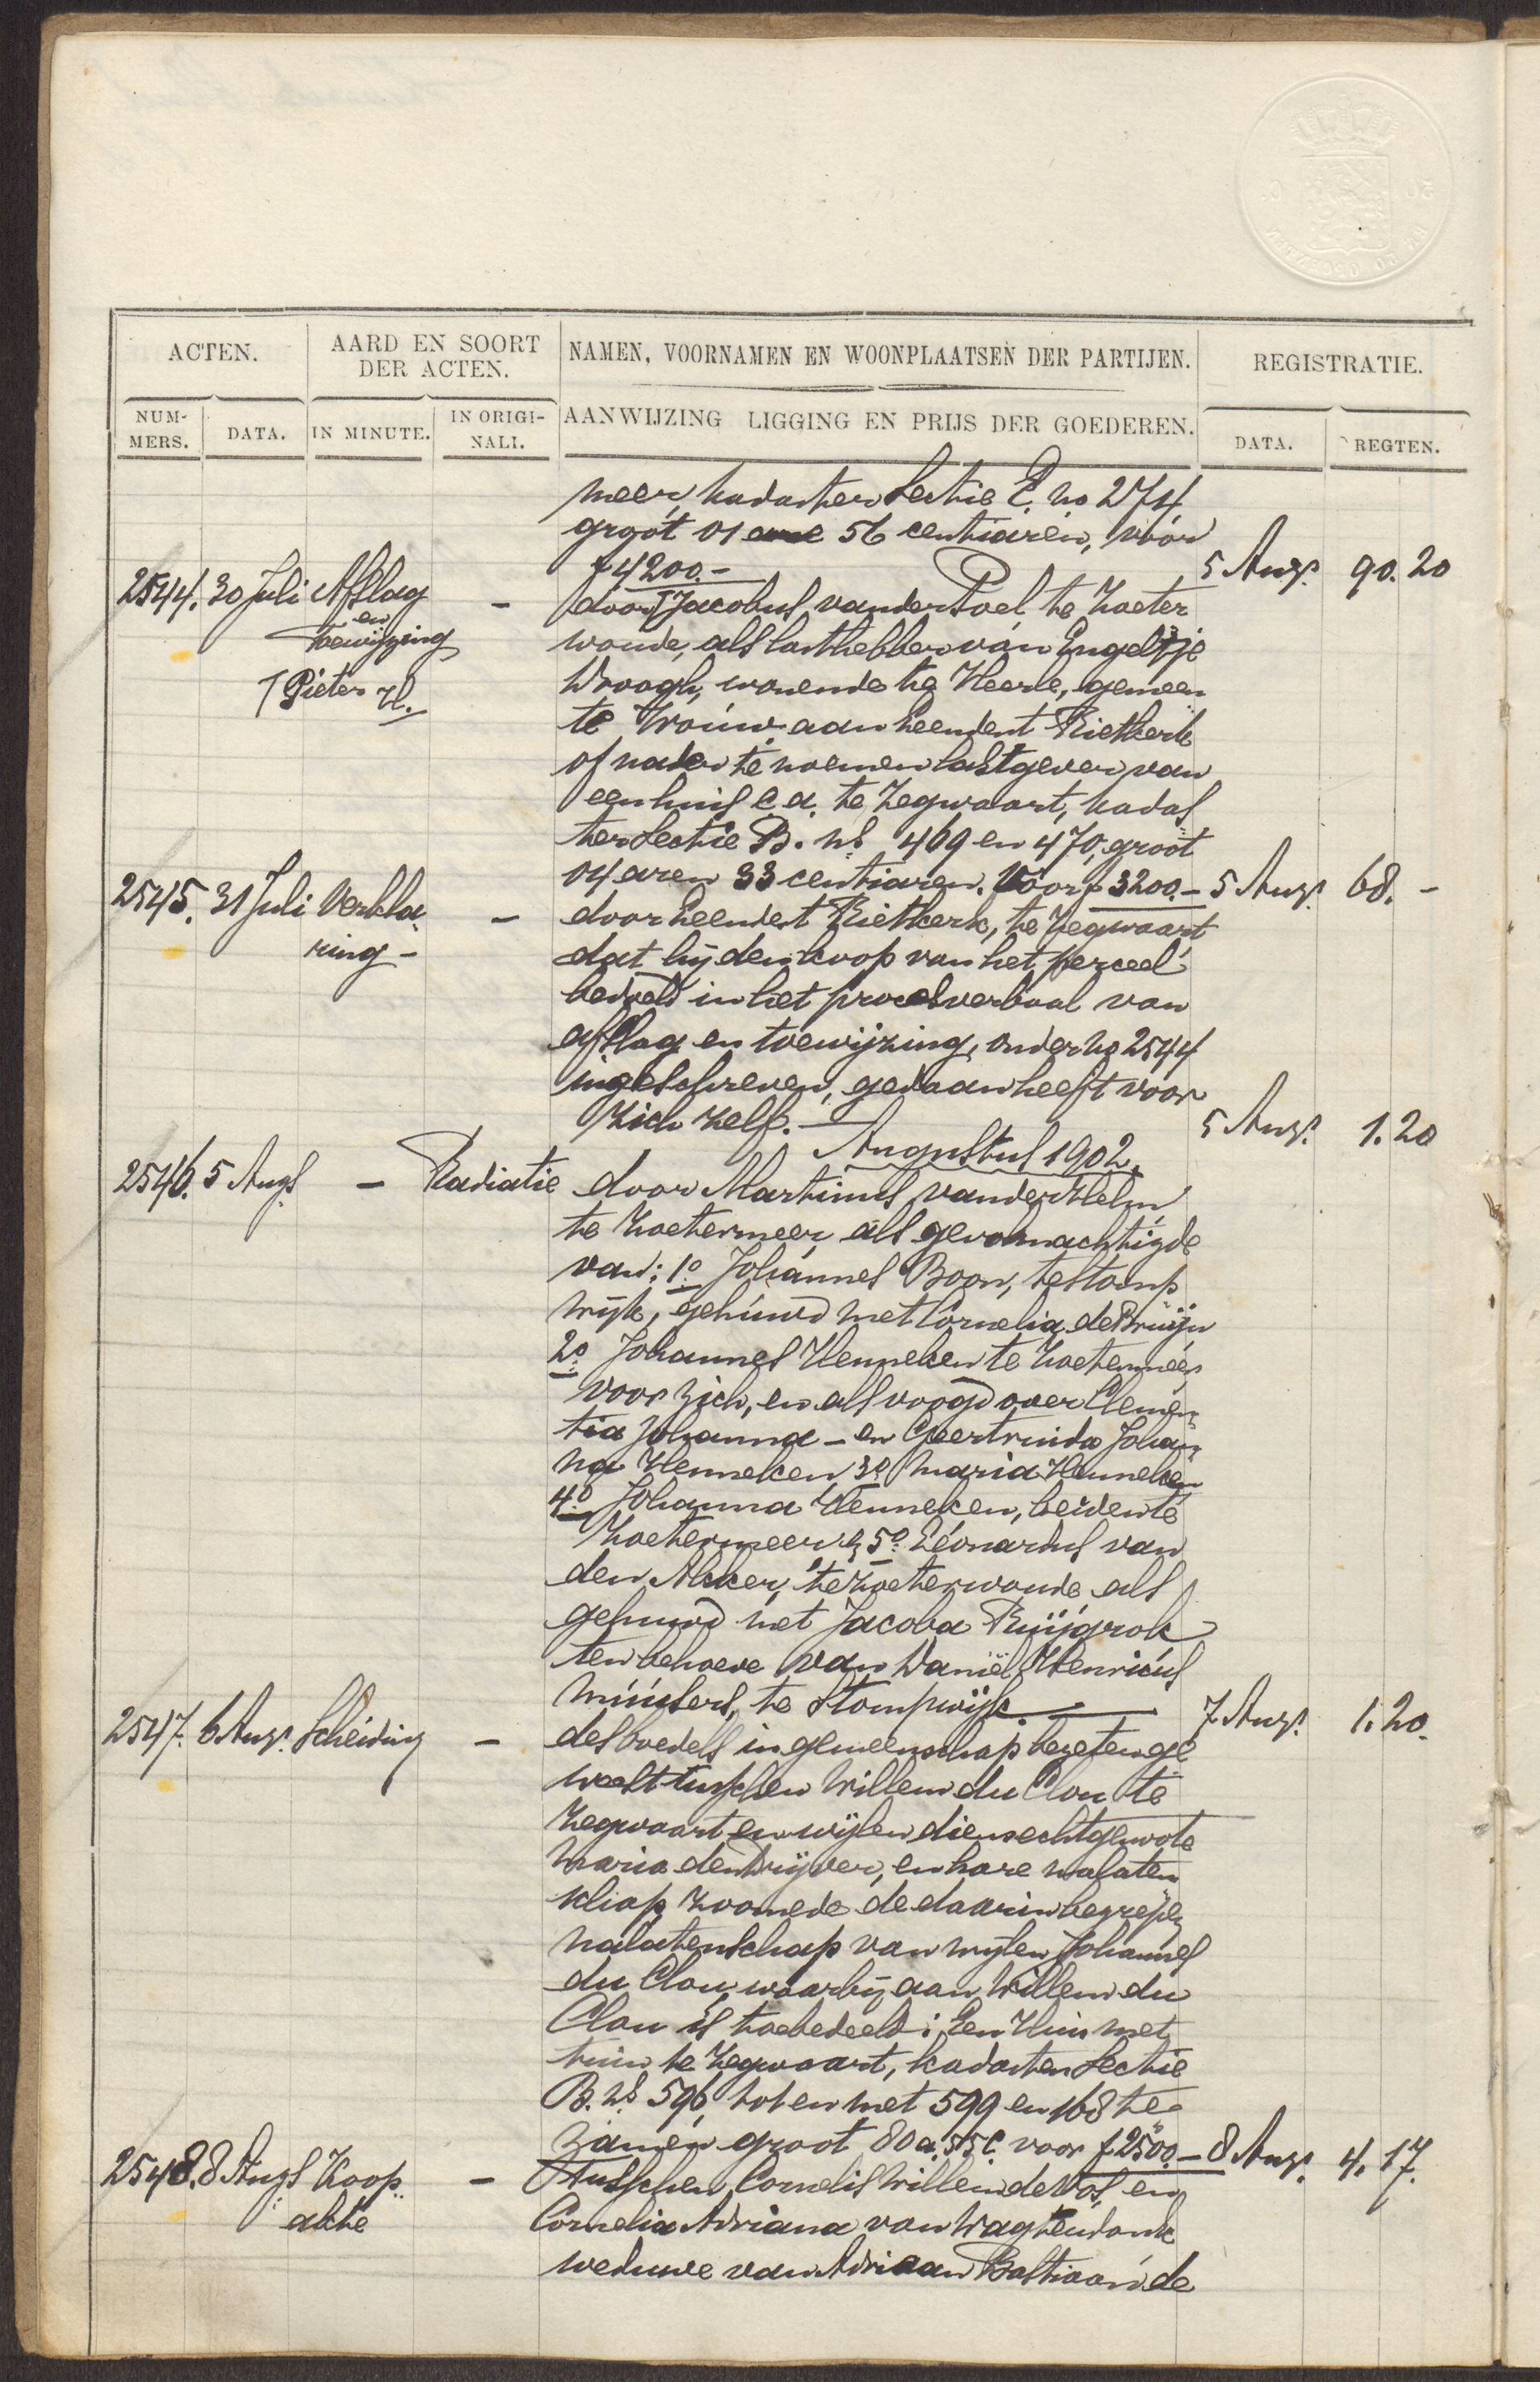 ACTEN. AARD EN SOORT DER ACTEN. NAMEN, VOORNAMEN EN WOONPLAATSEN DER PARTIJEN. REGISTRATIE.
NUM-MERS. DATA. IN MINUTE. IN ORIGI-NALI. AANWIJZING LIGGING EN PRIJS DER GOEDEREN. DATA. REGTEN.
meer, kadaster Sectie E. no 274
groot 01 are 56 centiaren, voor
f 4200.- 5 Augs. 90.20
2544. 30 Juli Afslag - door Γ Jacobus van der Poel te Zoeter
en
toewijzing woude, als lasthebber van Engeltje
Γ Pieter Droogh, wonende te Heerle, gemeen
te Wouw aan Leendert Rietkerk
of nader te noemen lastgever van
een huis c.a. te Zegwaart, kadas
ter Sectie B. ns 469 en 470, groot
04 aren 33 centiaren. Voor f 3200.- 5 Augs. 68.-
2545. 31 Juli Verkla - door Leendert Rietkerk, te Zegwaart
ring - dat hij den koop van het perceel
bedoeld in het procesverbaal van
afslag en toewijzing, onder no 2544
ingeschreven, gedaan heeft voor
zich zelf. - 5 Augs. 1.20
Augustus 1902.
2546. 5 Augs - Radiatie door Martinus van der Helm
te Zoetermeer als gevolmachtigde
van: 1o Johannes Boon, te Stomp
wijk, gehuwd met Cornelia de Bruijn
2o Johannes Henneken te Zoetermeer
voor zich, en als voogd over Clemen
tia Johanna - en Geertruida Johan
na Henneken 3o Maria Henneken
4o Johanna Henneken, beiden te
Zoetermeer & 5o Leonardus van
den Akker, te Zoeterwoude als
gehuwd met Jacoba Ruijgrok
ten behoeve van Daniël Henricus
te Stompwijk. - 7 Augs. 1.20.
2547. 6 Augs. Scheiding - des boedels in gemeenschap bezeten ge
weest tusschen Willem du Clou te
Zegwaart en wijlen diens echtgenoote
Maria den Drijver, en hare nalaten
schap, zoomede de daarin begrepen
nalatenschap van wijlen Johannes
du Clou, waarbij aan Willem du
Clou is toebedeeld: Een Huis met
tuin te Zegwaart, kadaster Sectie
B. ns 596, tot en met 599 en 168 te
zamen groot 80 a. 55 c. voor f 2500.- 8 Augs. 4.17.
2548. 8 Augs Koop - Tusschen Cornelis Willem de Vos, en
akte Cornelia Adriana van Wagtendonk
weduwe van Adriaan Bastiaan de